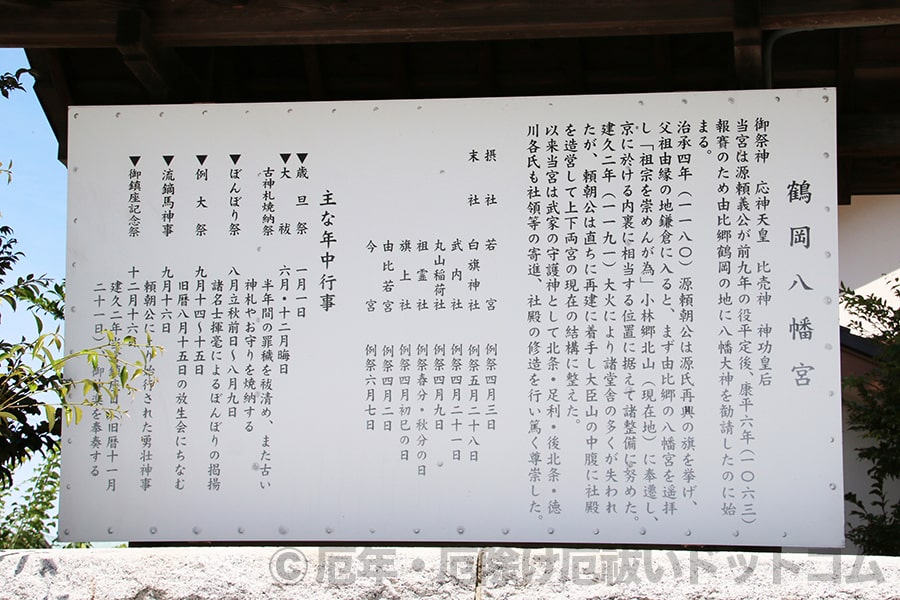 鶴岡八幡宮
御祭神　応神天皇　比売神　神功皇后
当宮は源頼義公が前九年の役平定後、康平六年（一〇六三）
報賽のため由比郷鶴岡の地に八幡大神を勧請したのに始
まる。
治承四年（一一八〇）源頼朝公は源氏再興の旗を挙げ、
父祖由縁の地鎌倉に入ると、まず由比郷の八幡宮を遥拝
し「祖宗を崇めんが為」小林郷北山（現在地）に奉遷し、
京に於ける内裏に相当する位置に据えて諸整備に努めた。
建久二年（一一九一）大火により諸堂舎の多くが失われ
たが、頼朝公は直ちに再建に着手し大臣山の中腹に社殿
を造営して上下両宮の現在の結構に整えた。
以来当宮は武家の守護神として北条・足利・後北条・徳
川各氏も社領等の寄進、社殿の修造を行い篤く尊崇した。
摂社　若宮　例祭四月三日
末社　白旗神社　例祭五月二十八日
武内社　例祭四月二十一日
丸山稲荷社　例祭四月九日
祖霊社　例祭春分・秋分の日
旗上社　例祭四月初巳の日
由比若宮　例祭四月二日
今宮　例祭六月七日
主な年中行事
▼歳旦祭　一月一日
▼大祓　六月・十二月晦日
古神札焼納祭　半年間の罪穢を祓清め、また古い
神札やお守りを焼納する
▼ぼんぼり祭　八月立秋前日～八月九日
諸名士揮毫によるぼんぼりの掲揚
▼例大祭　九月十四～十五日
旧暦八月十五日の放生会にちなむ
▼流鏑馬神事　九月十六日
頼朝公に始行された勇壮神事
▼御鎮座記念祭　十二月十六
建久二年旧暦十一月
二十一日）御を奉奏する
©厄年・厄除け厄祓いドットコム